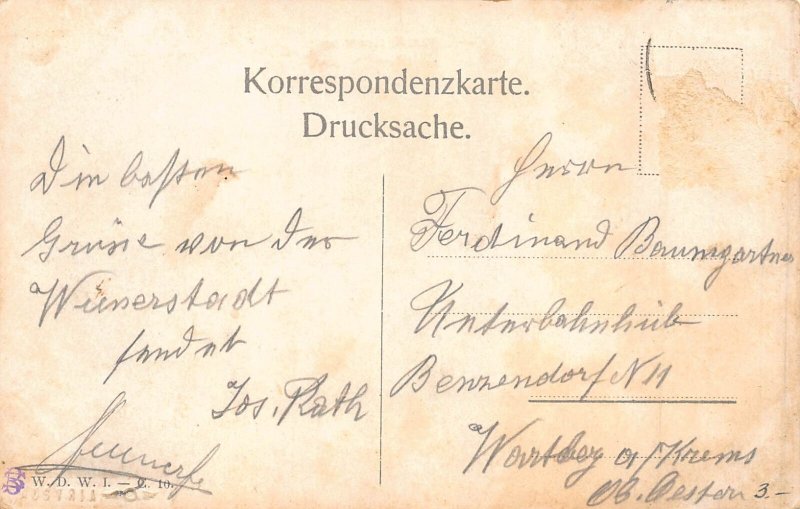 Korrespondenzkarte.
Drucksache.
Die besten
Grüße von der
Wienerstadt
sendet
Jos. Rath
Herrn
Ferdinand Baumgartner
Unterbahnhüb
Benzendorf N 11
Wartbeg a/Krems
Ob. Oesterr
W. D. W. I. — G. 10.
3.-